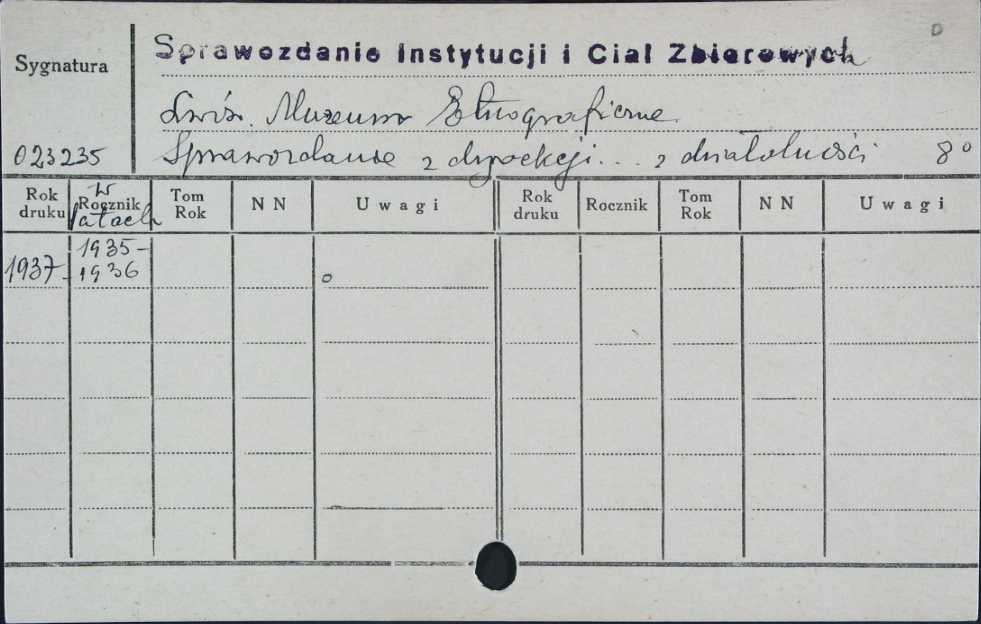 Sprawozdanie Instytucji i Ciał Zbiorowych
Sygnatura
Lwów. Muzeum Etnograficzne.
023235
Sprawozdanie z dyrekcji ... z działalności 8°
Rok druku
w
Rocznik
latach
Tom Rok
N N
Uwagi
Rok druku
Rocznik
Tom Rok
N N
Uwagi
1937
1935-
1936